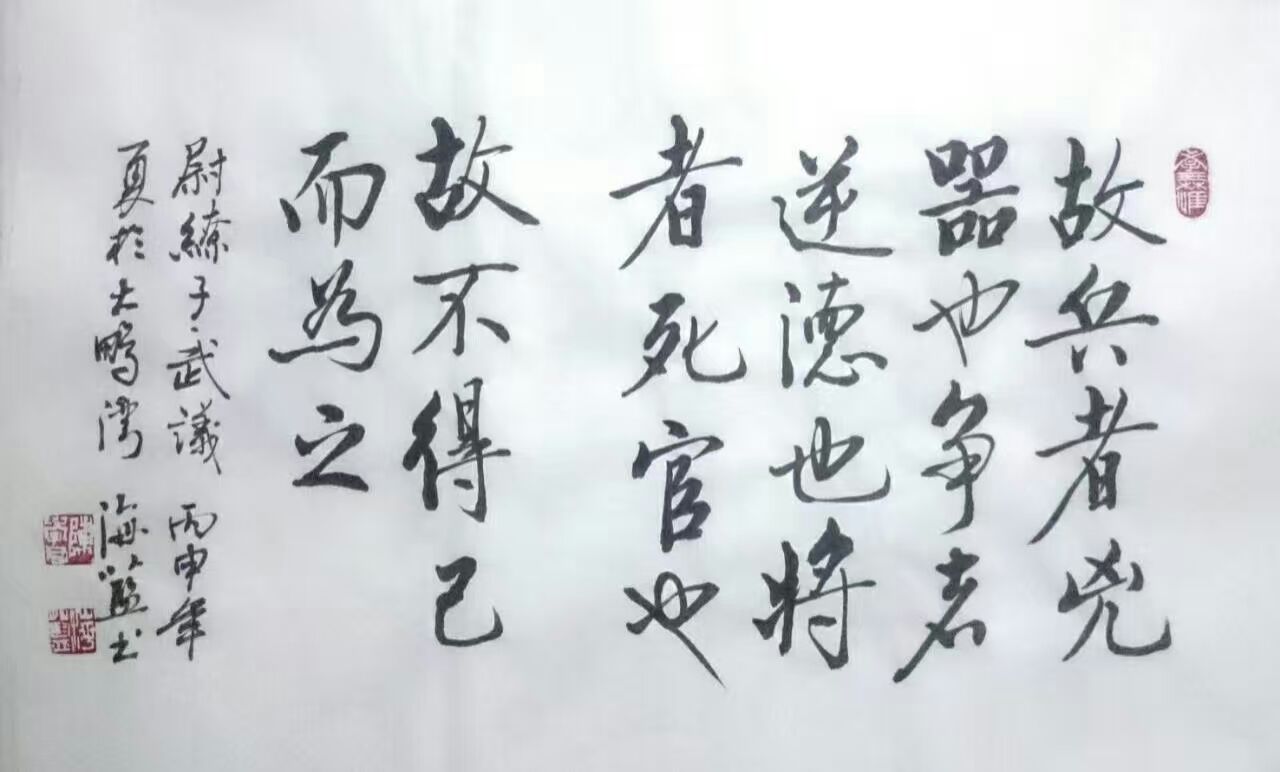 故兵者兇
器也争者
逆德也将
者死官也
故不得已
而為之
尉繚子武議 丙申年
夏於大鵬灣 海藍书